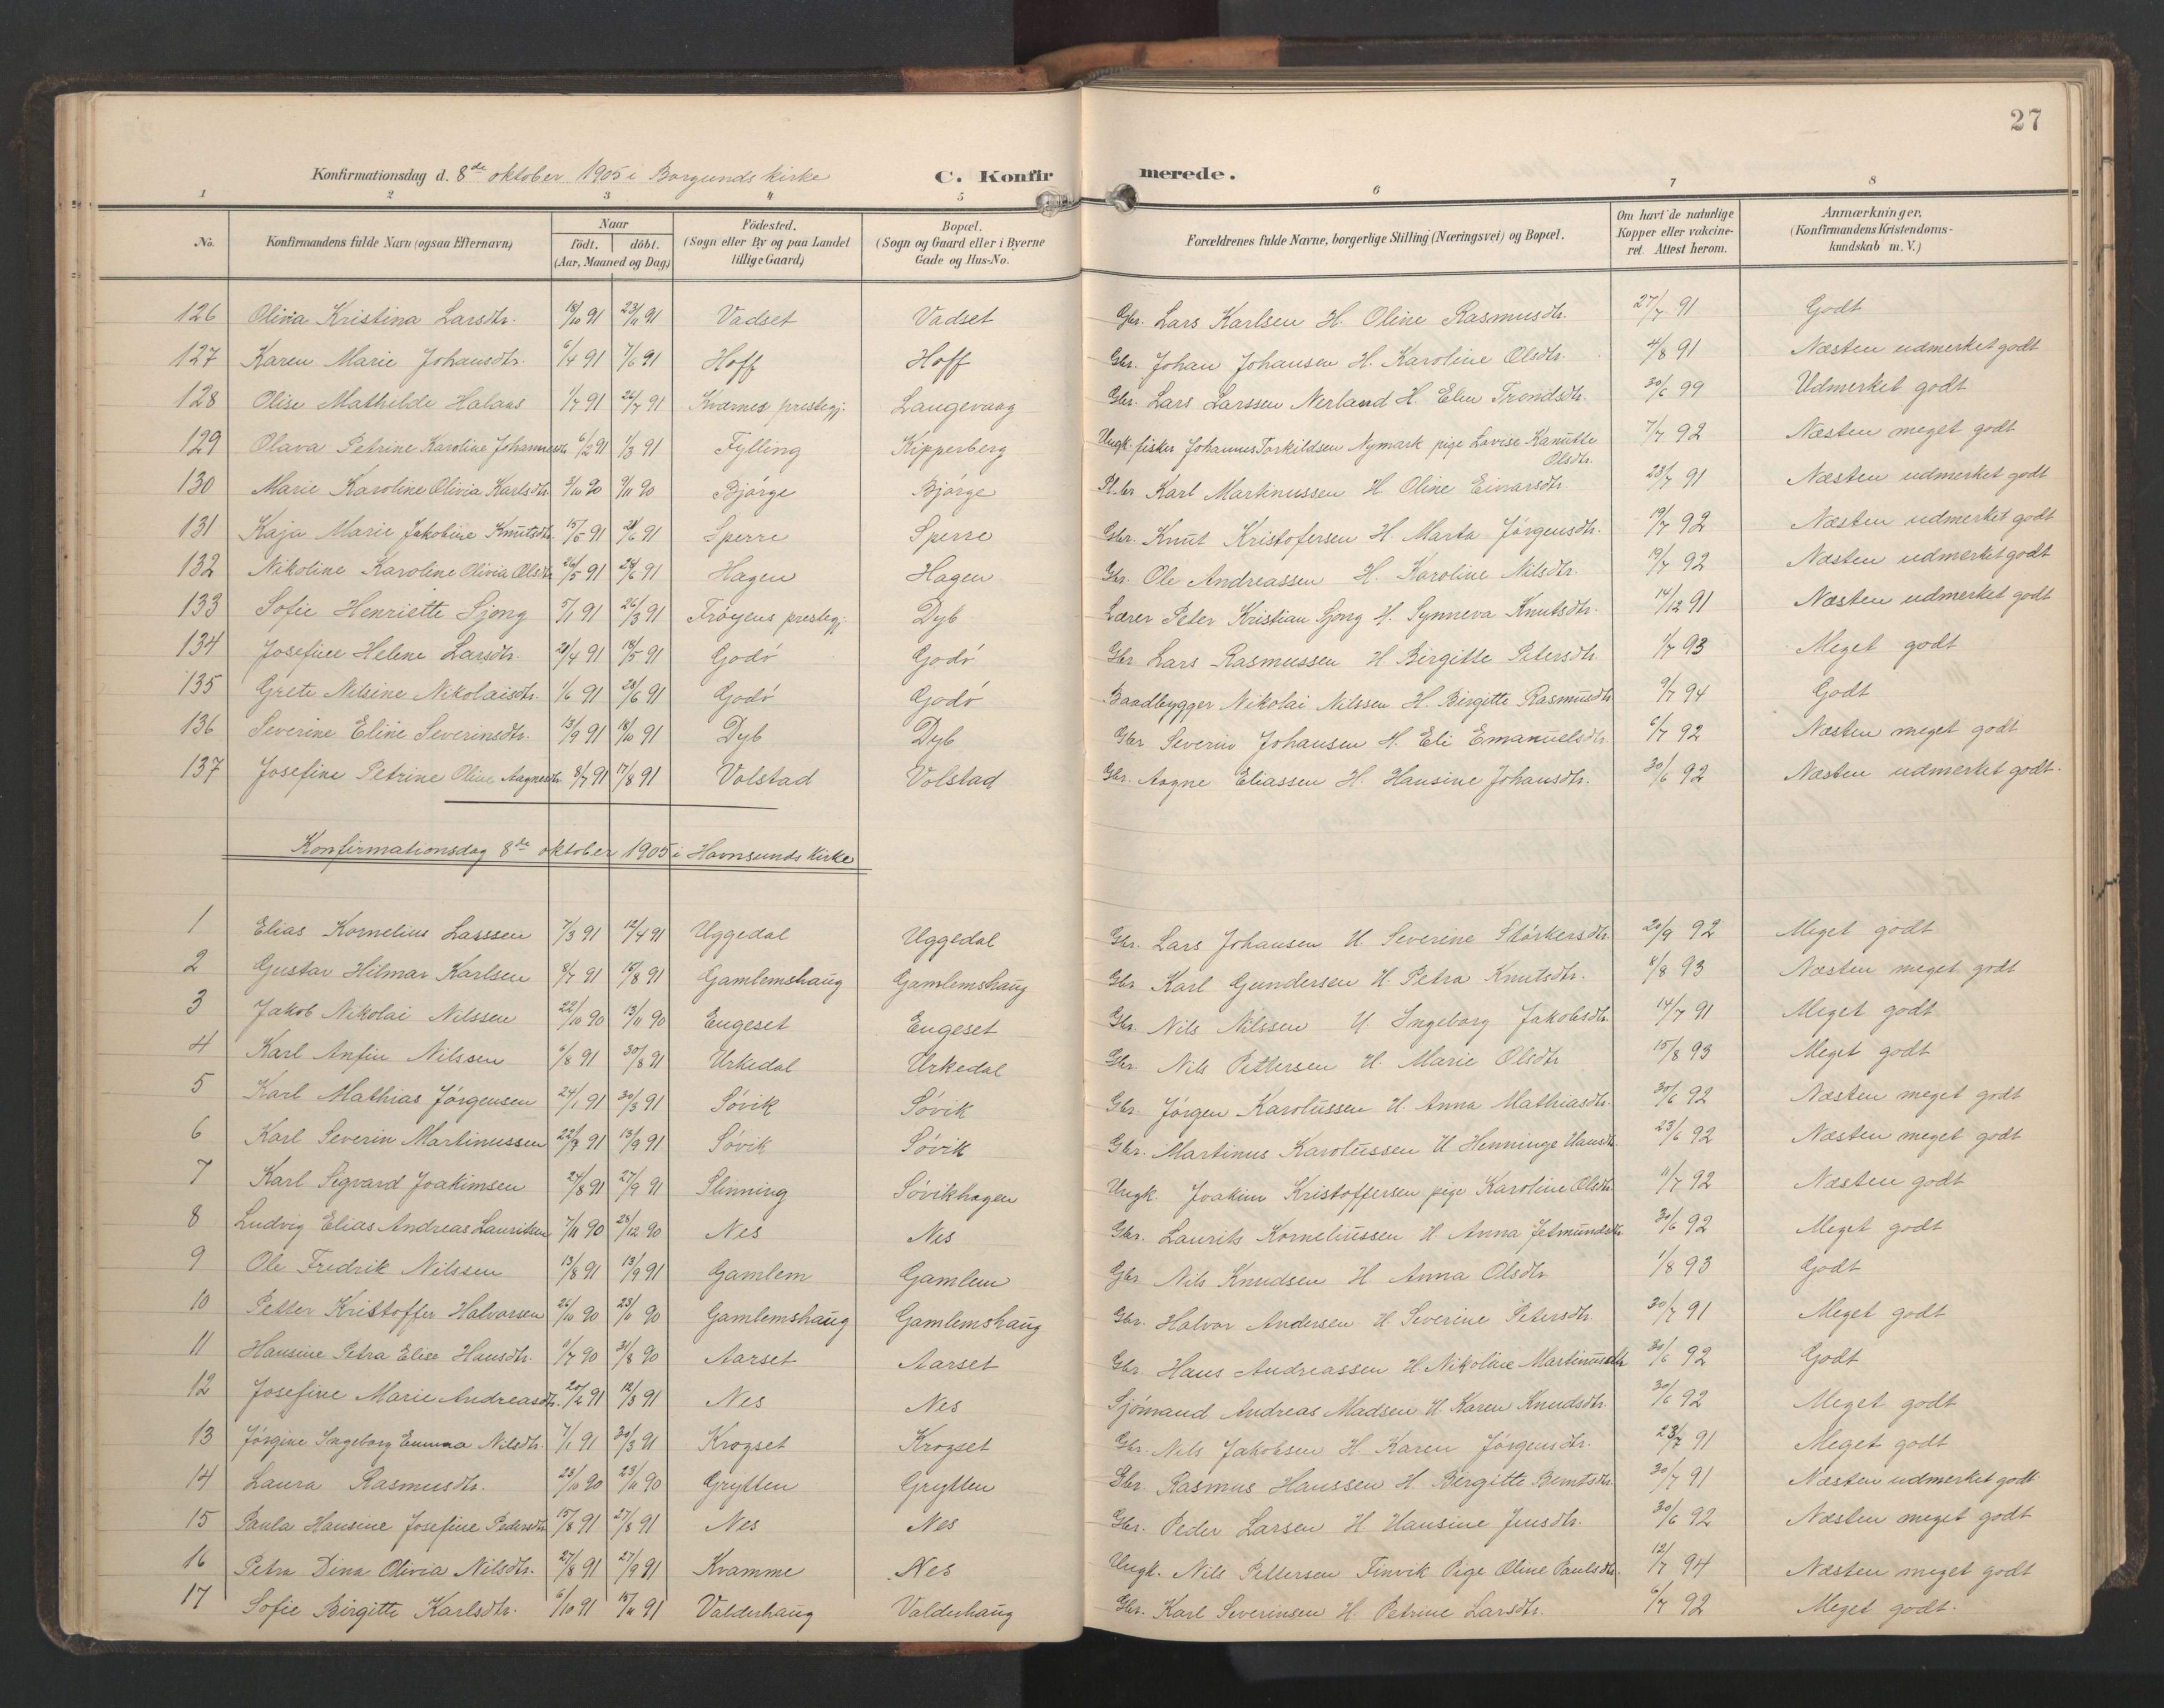 27
Konfirmationsdag d. 8de oktober 1905 i Borgunds kirke C. Konfirmerede.
1 2 3 4 5 6 7 8
No. Konfirmandens fulde Navn (ogsaa Efternavn) Naar født. døbt. (Aar, Maaned og Dag) Fødested. (Sogn eller By og paa Landet tillige Gaard) Bopæl. (Sogn og Gaard eller i Byerne Gade og Hus-No. Forældrenes fulde Navne, borgerlige Stilling (Næringsvei) og Bopæl. Om havt de naturlige Kopper eller vakcineret. Attest herom. Anmærkninger. (Konfirmandens Kristendomskundskab m. V.)
126 Olivia Kristina Larsdtr. 18/10 91 23/11 91 Vadset Vadset Gbr. Lars Karlsen H. Oline Rasmusdtr. 27/7 91 Godt
127 Karen Marie Johansdtr. 6/4 91 7/6 91 Hoff Hoff Gbr. Johan Johansen H. Karoline Olsdtr. 4/8 91 Næsten udmerket godt
128 Olise Mathilde Halaas 1/7 91 26/7 91 Kværnes prestegj. Langevaag Gbr. Lars Larssen Nerland H. Elen Trondsdtr. 30/6 99 Udmerket godt
129 Olava Petrine Karoline Johannesdtr 6/2 91 1/3 91 Fylling Kipperberg Ungk. fisker Johannes Torkildsen Nymark pige Lovise Kanutte Olsdtr. 7/7 92 Næsten meget godt
130 Marie Karoline Olivia Karlsdtr 3/10 90 9/11 90 Bjørge Bjørge Karl Martinussen H. Oline Eivarsdtr. 23/7 91 Næsten udmerket godt
131 Kaja Marie Jakobine Knutsdtr. 15/5 91 21/6 91 Sperre Sperre Gbr. Knut Kristofersen H. Marta Jørgensdtr. 19/7 92 Næsten udmerket godt
132 Nikoline Karoline Olivia Olsdtr 26/5 91 28/6 91 Hagen Hagen Gbr. Ole Andreassen H. Karoline Nilsdtr. 19/7 92 Næsten udmerket godt
133 Sofie Henriette Sjong 5/1 91 26/3 91 Frøyens prestegj. Dyb Lærer Peter Kristian Sjong H. Synneva Knutsdtr. 14/12 91 Næsten udmerket godt
134 Josefine Helene Larsdtr. 21/4 91 18/5 91 Godø Godø Gbr Lars Rasmussen H Birgitte Petersdtr 1/7 93 Meget godt
135 Grete Nilsine Nikolaisdtr. 1/6 91 28/6 91 Godø Godø Baadbygger Nikolai Nilssen H. Birgitte Rasmusdtr 9/7 94 Godt
136 Severine Eline Severinsdtr. 13/9 91 18/10 91 Dyb Dyb Gbr Severin Johansen H. Eli Emanuelsdtr. 6/7 92 Næsten meget godt
137 Josefine Petrine Oline Aagnesdtr 8/7 91 17/8 91 Volstad Volstad Gbr. Aagne Eliassen H. Hansine Johansdtr. 30/6 92 Næsten udmerket godt.
Konfirmationsdag 8de oktober 1905 i Hamnsunds kirke
1 Elias Kornelius Larssen 7/3 91 12/4 91 Uggedal Uggedal Gbr. Lars Johansen H Severine Størkersdtr. 20/9 92 Meget godt
2 Gustav Hilmar Karlsen 8/7 91 15/8 91 Gamlemshaug Gamlemshaug Gbr Karl Gundersen H. Petra Knutsdtr. 8/8 93 Næsten meget godt
3 Jakob Nikolai Nilssen 22/10 90 13/11 90 Engeset Engeset Gbr. Nils Nilssen H Ingeborg Jakobsdtr. 14/7 91 Meget godt
4 Karl Anfin Nilssen 6/8 91 30/8 91 Urkedal Urkedal Gbr. Nils Pettersen H. Marie Olsdtr 15/8 93 Meget godt
5 Karl Mathias Jørgensen 24/1 91 30/3 91 Søvik Søvik Gbr. Jørgen Karolussen H. Anna Mathiasdtr. 30/6 92 Næsten meget godt
6 Karl Severin Martinussen 22/8 91 13/9 91 Søvik Søvik Gbr. Martinus Karolussen H Henninge Hansdtr. 23/6 92 Næsten meget godt
7 Karl Sigvard Joakimsen 24/8 91 27/9 91 Slinning Søvikhagen Ungk. Joakim Kristoffersen pige Karoline Olsdtr. 11/7 92 Næsten godt
8 Ludvig Elias Andreas Lauritsen 7/11 90 28/12 90 Nes Nes Gbr. Laurits Korneliussen H Anna Jetmundsdtr. 30/6 92 Meget godt
9 Ole Fredrik Nilssen 13/8 91 13/9 91 Gamlem Gamlem Gbr Nils Knudsen H Anna Olsdtr 1/8 93 Godt
10 Petter Kristoffer Halvorsen 26/10 90 23/11 90 Gamlemshaug Gamlemshaug Gbr. Halvor Andersen H. Severine Petersdtr. 30/7 91 Meget godt
11 Hansine Petra Elise Hansdtr. 9/7 90 31/8 90 Aarset Aarset Gbr. Hans Andreassen H. Nikoline Martinusdtr 30/6 92 Godt
12 Josefine Marie Andreasdtr. 20/2 91 12/3 91 Nes Nes Sjømand Andreas Madsen H. Karen Knudsdtr. 30/6 92 Meget godt
13 Jørgine Ingeborg Emma Nilsdtr. 7/1 91 30/3 91 Krogset Krogset Gbr. Nils Jakobsen H. Karen Jørgensdtr. 23/7 91 Meget godt
14 Laura Rasmusdtr. 23/10 90 23/11 90 Grytten Grytten Gbr. Rasmus Hanssen H. Birgitte Berntsdtr. 30/7 91 Næsten udmerket godt
15 Paula Hansine Josefine Pedersdtr 15/8 91 27/8 91 Nes Nes Gbr. Peder Larsen H Hansine Jensdtr. 30/6 92 Næsten meget godt
16 Petra Dina Olivia Nilsdtr. 27/8 91 27/9 91 Kvamme Nes Ungk. Nils Pettersen Finvik Pige Oline Paulsdtr. 12/7 94 Næsten meget godt
17 Sofie Birgitte Karlsdtr. 6/10 91 15/11 91 Valderhaug Valderhaug Gbr. Karl Severinsen H. Petrine Larsdtr. 6/7 92 Meget godt.